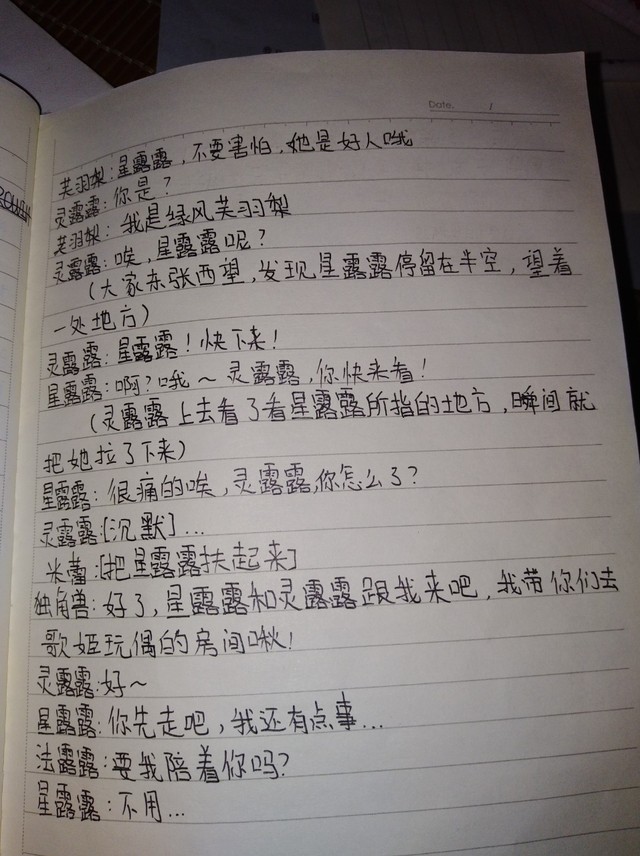 Date. /
芙羽梨：星露露，不要害怕，她是好人哦
灵露露：你是？
芙羽梨：我是绿风芙羽梨
灵露露：唉，星露露呢？
（大家东张西望，发现星露露停留在半空，望着
一处地方）
灵露露：星露露！快下来！
星露露：啊？哦～灵露露，你快来看！
（灵露露上去看了看星露露所指的地方，瞬间就
把她拉了下来）
星露露：很痛的唉，灵露露，你怎么了？
灵露露：[沉默]...
米蕾：[把星露露扶起来]
独角兽：好了，星露露和灵露露跟我来吧，我带你们去
歌姬玩偶的房间啾！
灵露露：好～
星露露：你先走吧，我还有点事...
法露露：要我陪着你吗？
星露露：不用...